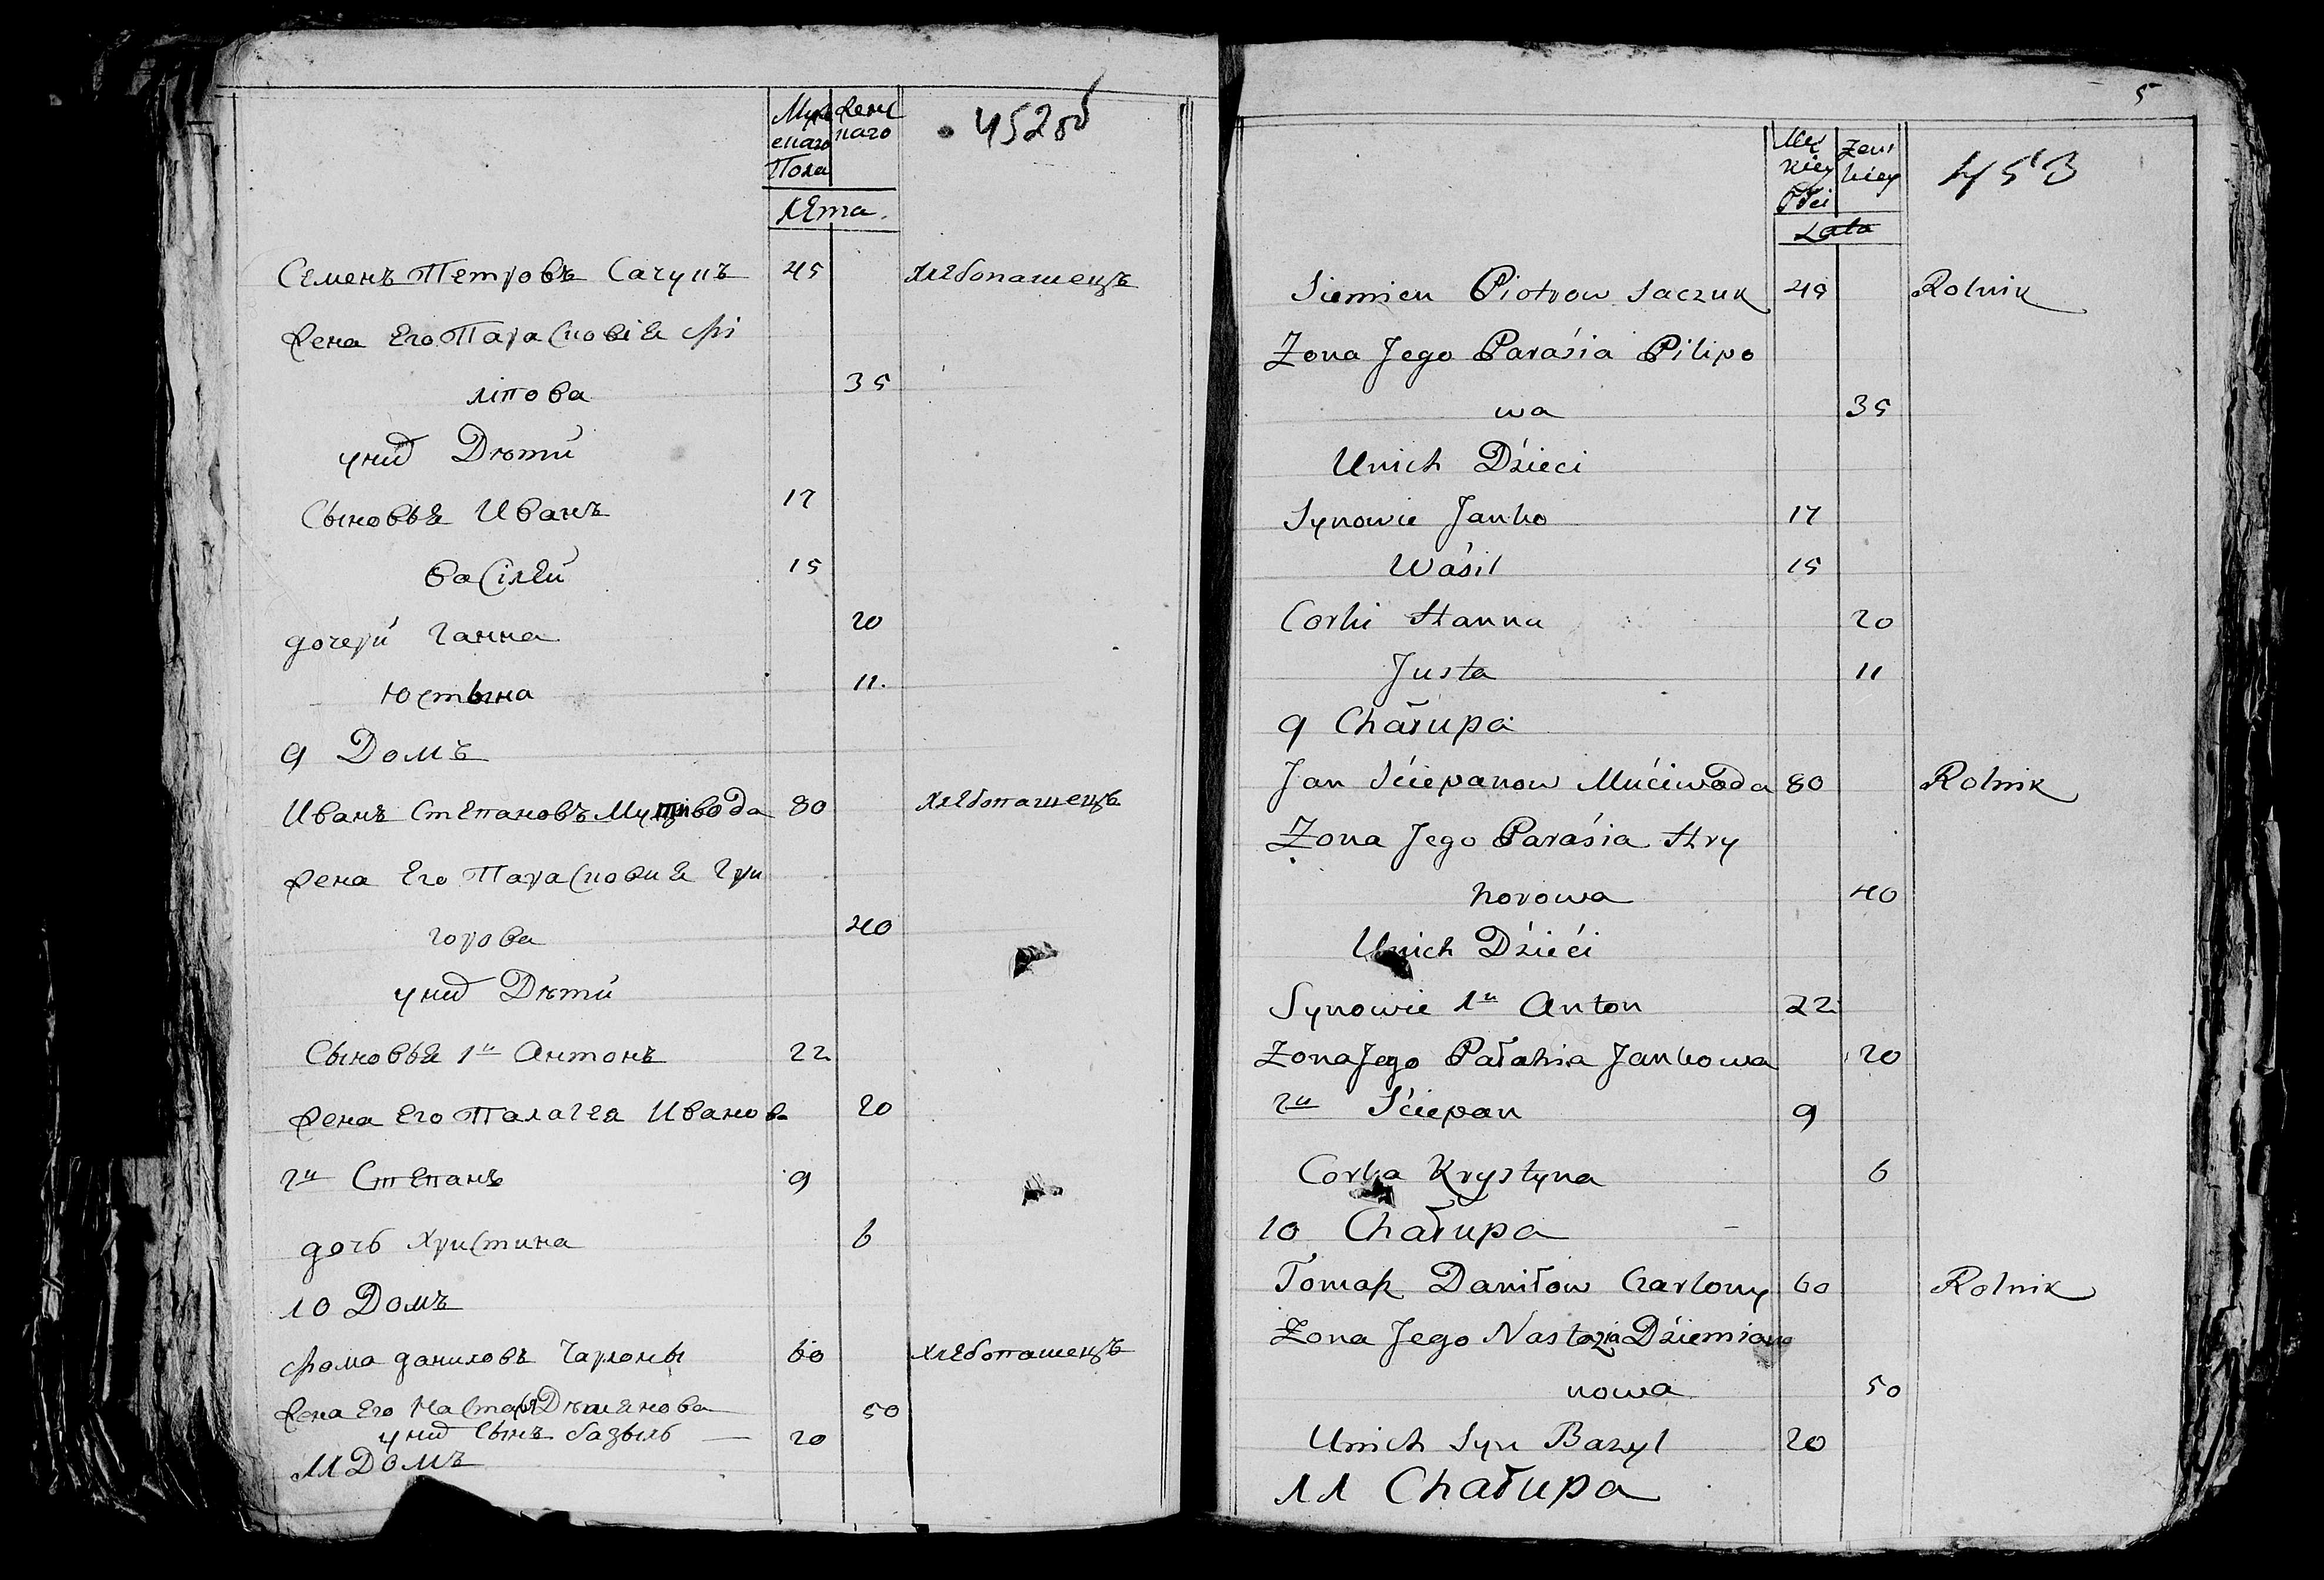 Муж Жен
скаго наго
Пола
Лѣта.
452об
Семенъ Петровъ Сачукъ 45 Хлебопашецъ
Жена Его Парасковіа Фі
ліпова 35
у них Дѣти
Сыновья Иванъ 17
Васілей 15
дочери Ганна 20
Юстына 11.
9 Домъ
Иванъ Степановъ Мутивода 80 Хлебопашецъ
Жена Его Парасковия Гри
горова 40
у них Дѣти
Сыновья 1й Антонъ 22
Жена Его Палагея Иванова 20
2й Степанъ 9
дочь Христина 6
10 Домъ
Фома даниловъ Чарлоны 60 Хлебопашецъ
Жена Его Настазя Дѣмянова 50
у них Сынъ базыль — 20
11 Домъ
5
Męz Zens
kiey kiey
Płci
Lata
453
Siemien Piotrow Saczuk 45 Rolnik
Zona Jego Paraśia Pilipo
wa 35
Unich Dźieci
Synowie Janko 17
Waśil 15
Corki Hanna 20
Justa 11
9 Chałupa
Jan Sciepanow Mućiwoda 80 Rolnik
Zona Jego Paraśia Hry
horowa 40
Unich Dźieći
Synowie 1u Anton 22
Zona Jego Pałahia Jankowa 20
2u Sciepan 9
Corka Krystyna 6
10 Chałupa
Tomasz Daniłow Czarlony 60 Rolnik
Zona Jego Nastazia Dźiemiano
nowa 50
Unich Syn Bazyl 20
11 Chałupa